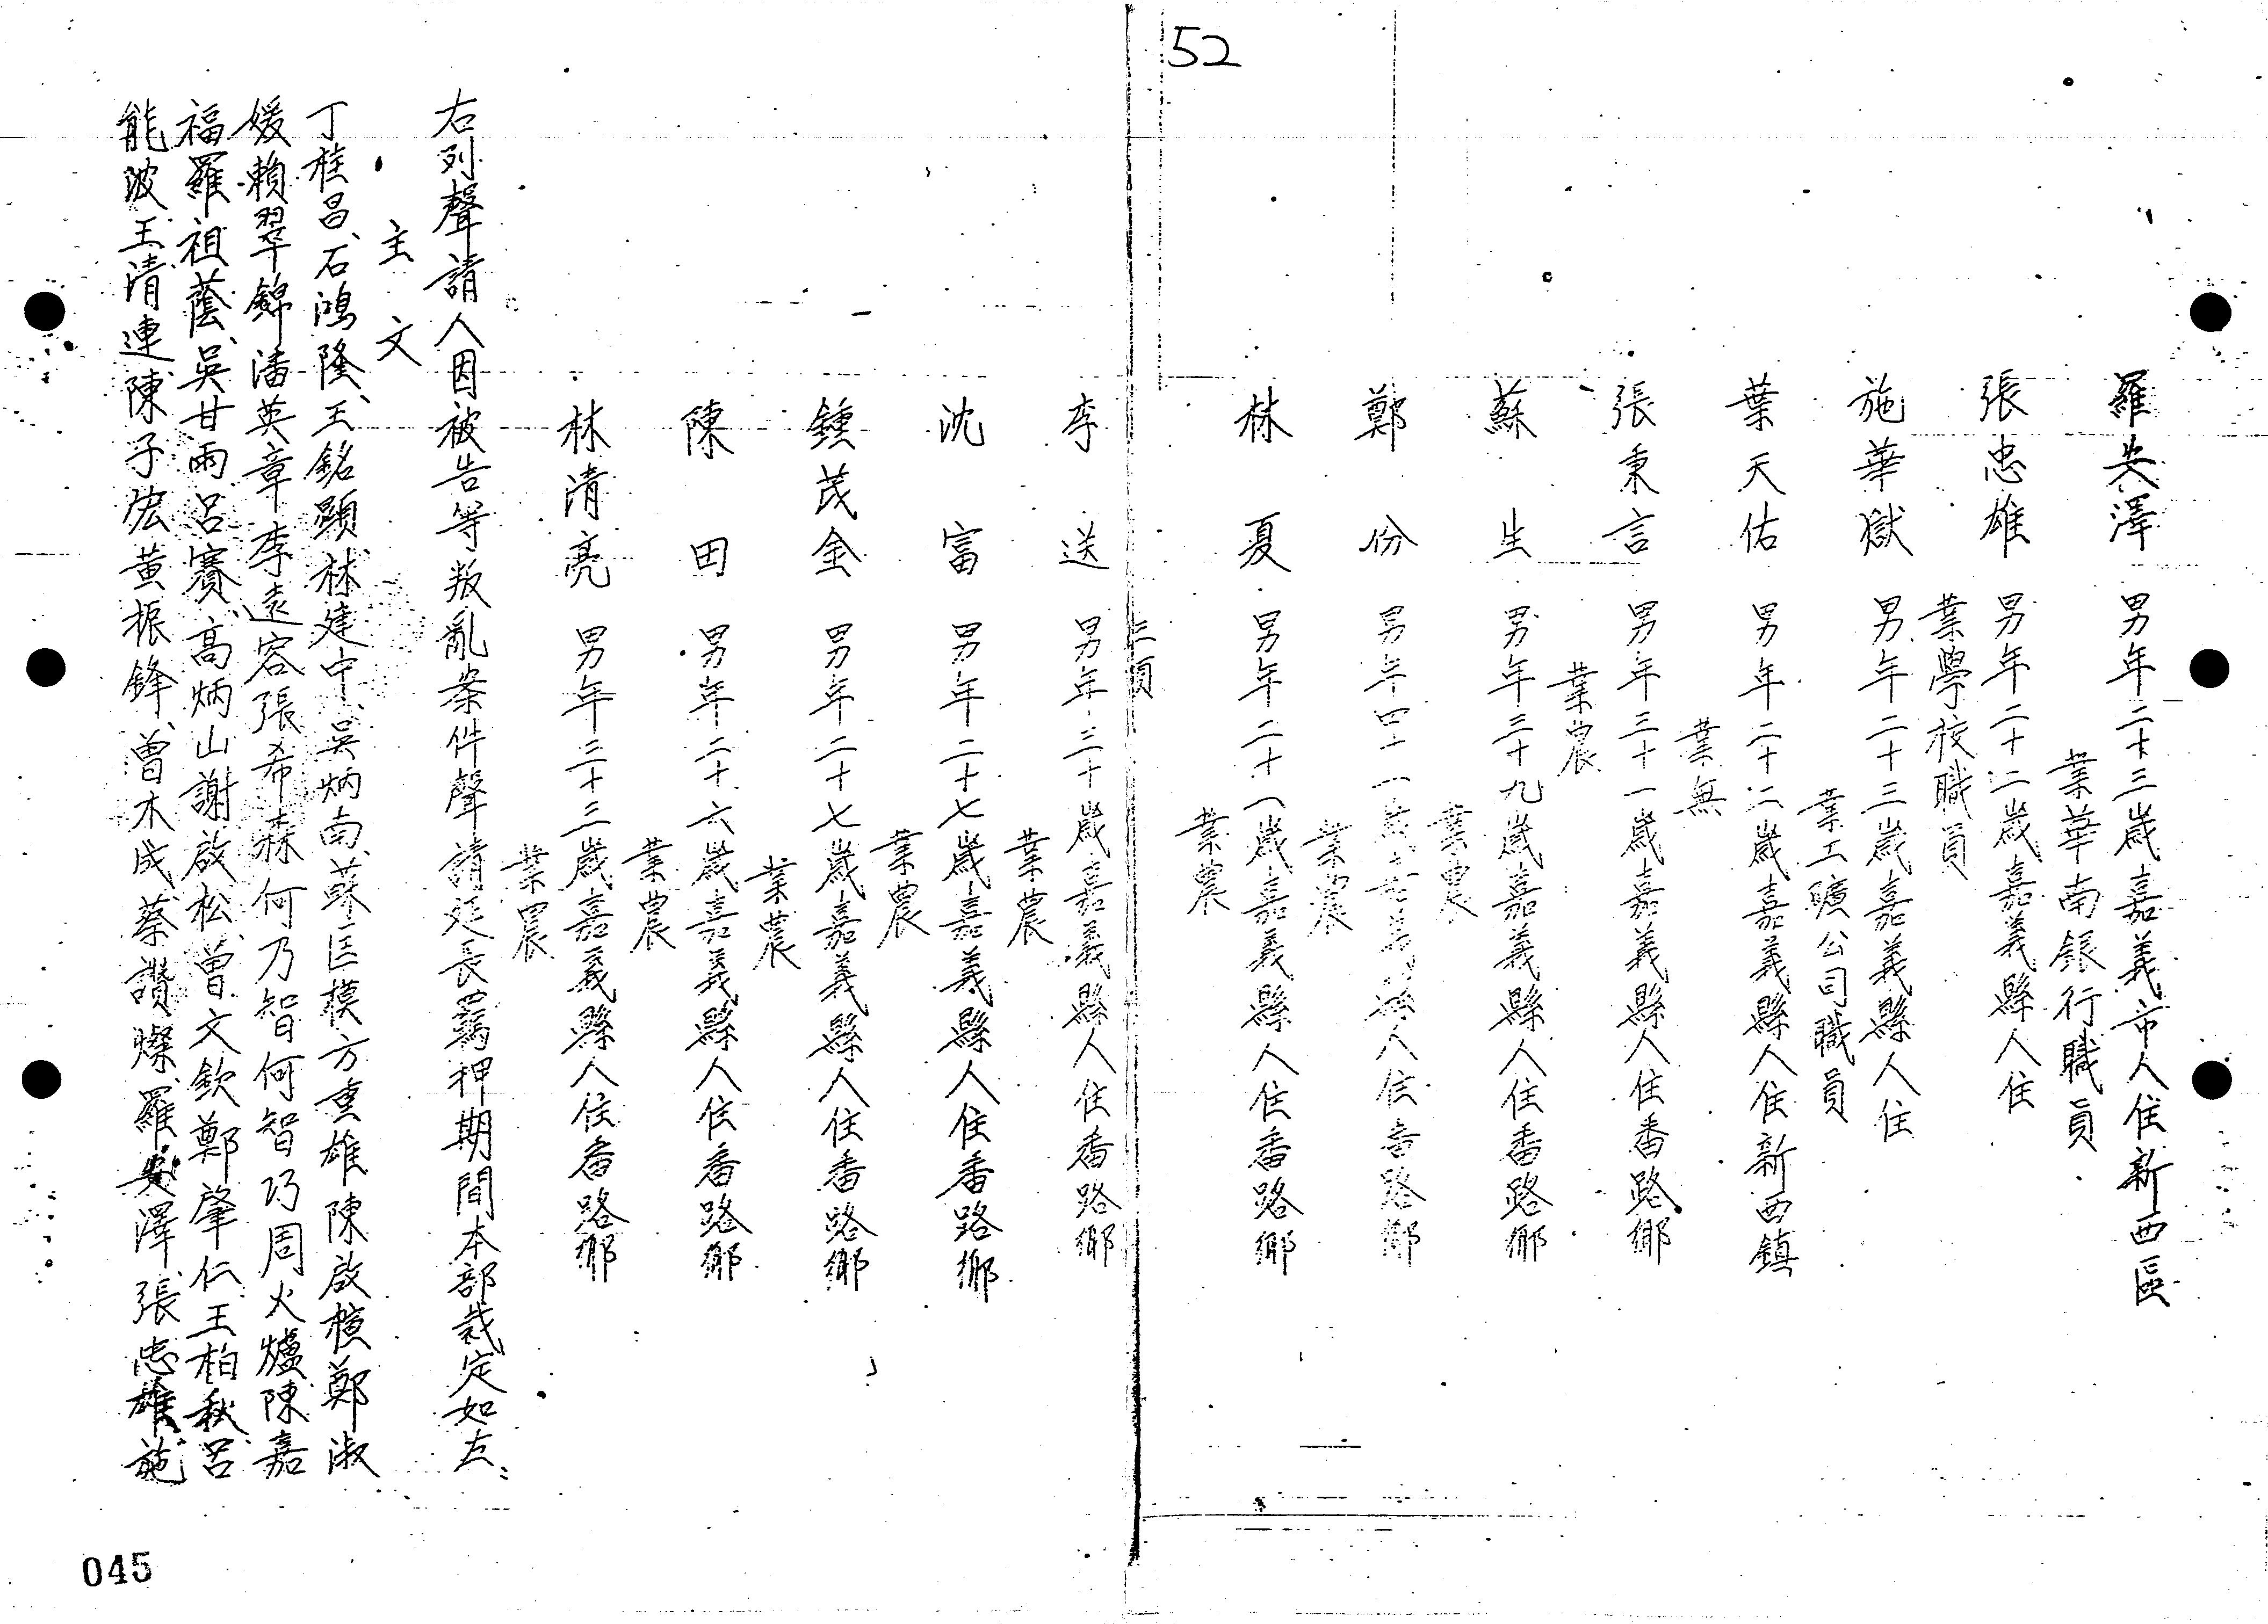 52
羅安澤 男年二十三歲嘉義市人住新西區
業華南銀行職員
張忠雄 男年二十二歲嘉義縣人住
業學校職員
施華獄 男年二十三歲嘉義縣人住
業工礦公司職員
葉天佑 男年二十二歲嘉義縣人住新西鎮
業無
張秉言 男年三十一歲嘉義縣人住番路鄉
業農
蘇 生 男年三十九歲嘉義縣人住番路鄉
業農
鄭 份 男年四十一歲嘉義縣人住番路鄉
業農
林 夏 男年二十一歲嘉義縣人住番路鄉
業農
三頁
李 送 男年三十歲嘉義縣人住番路鄉
業農
沈 富 男年二十七歲嘉義縣人住番路鄉
業農
鍾茂金 男年二十七歲嘉義縣人住番路鄉
業農
陳 田 男年二十六歲嘉義縣人住番路鄉
業農
林清亮 男年三十三歲嘉義縣人住番路鄉
業農
右列聲請人因被告等叛亂案件聲請延長羈押期間本部裁定如左:
主 文
丁桂昌、石鴻隆、王銘顯、林建中、吳炳南、蘇匡模方重雄陳啟横鄭淑
媛賴翠錦潘英章李遠容張希森何乃智何智巧周火爐陳嘉
福羅祖蔭、吳甘雨呂賽、高炳山謝啟松、曾文欽鄭肇仁王柏秋、呂
能波王清連、陳子宏黃振鋒、曾木成蔡讚燦、羅安澤張忠雄、施
045